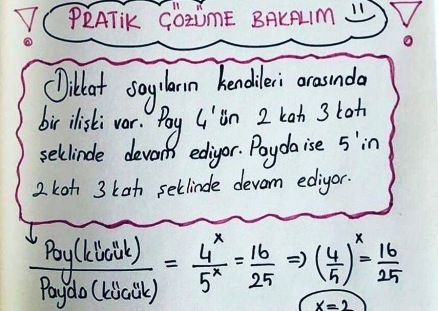 PRATİK ÇÖZÜME BAKALIM
Dikkat sayıların kendileri arasında
bir ilişki var. Pay 4'ün 2 katı 3 katı
şeklinde devam ediyor. Payda ise 5'in
2 katı 3 katı şeklinde devam ediyor.
Pay(küçük) / Payda(küçük) = 4^x / 5^x = 16 / 25 => (4/5)^x = 16/25
x=2